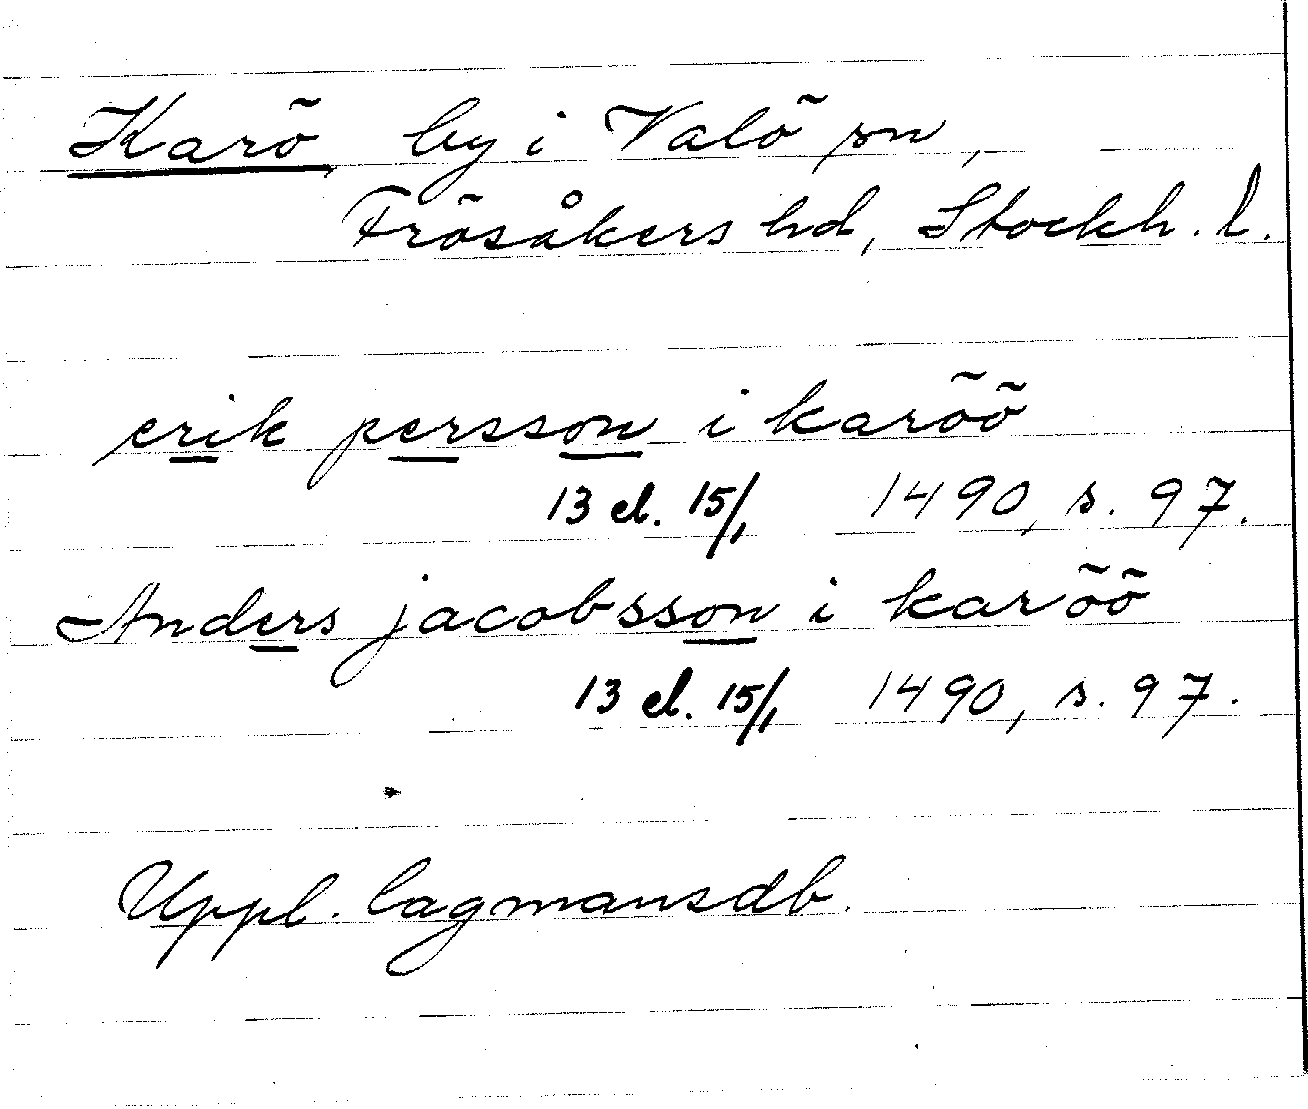 Karö by i Valö sn,
Frösåkers hd, Stockh. l.
erik persson i karöö
13 el. 15/1 1490, s. 97.
Anders jacobsson i karöö
13 el. 15/1 1490, s. 97.
Uppl. lagmansdb.